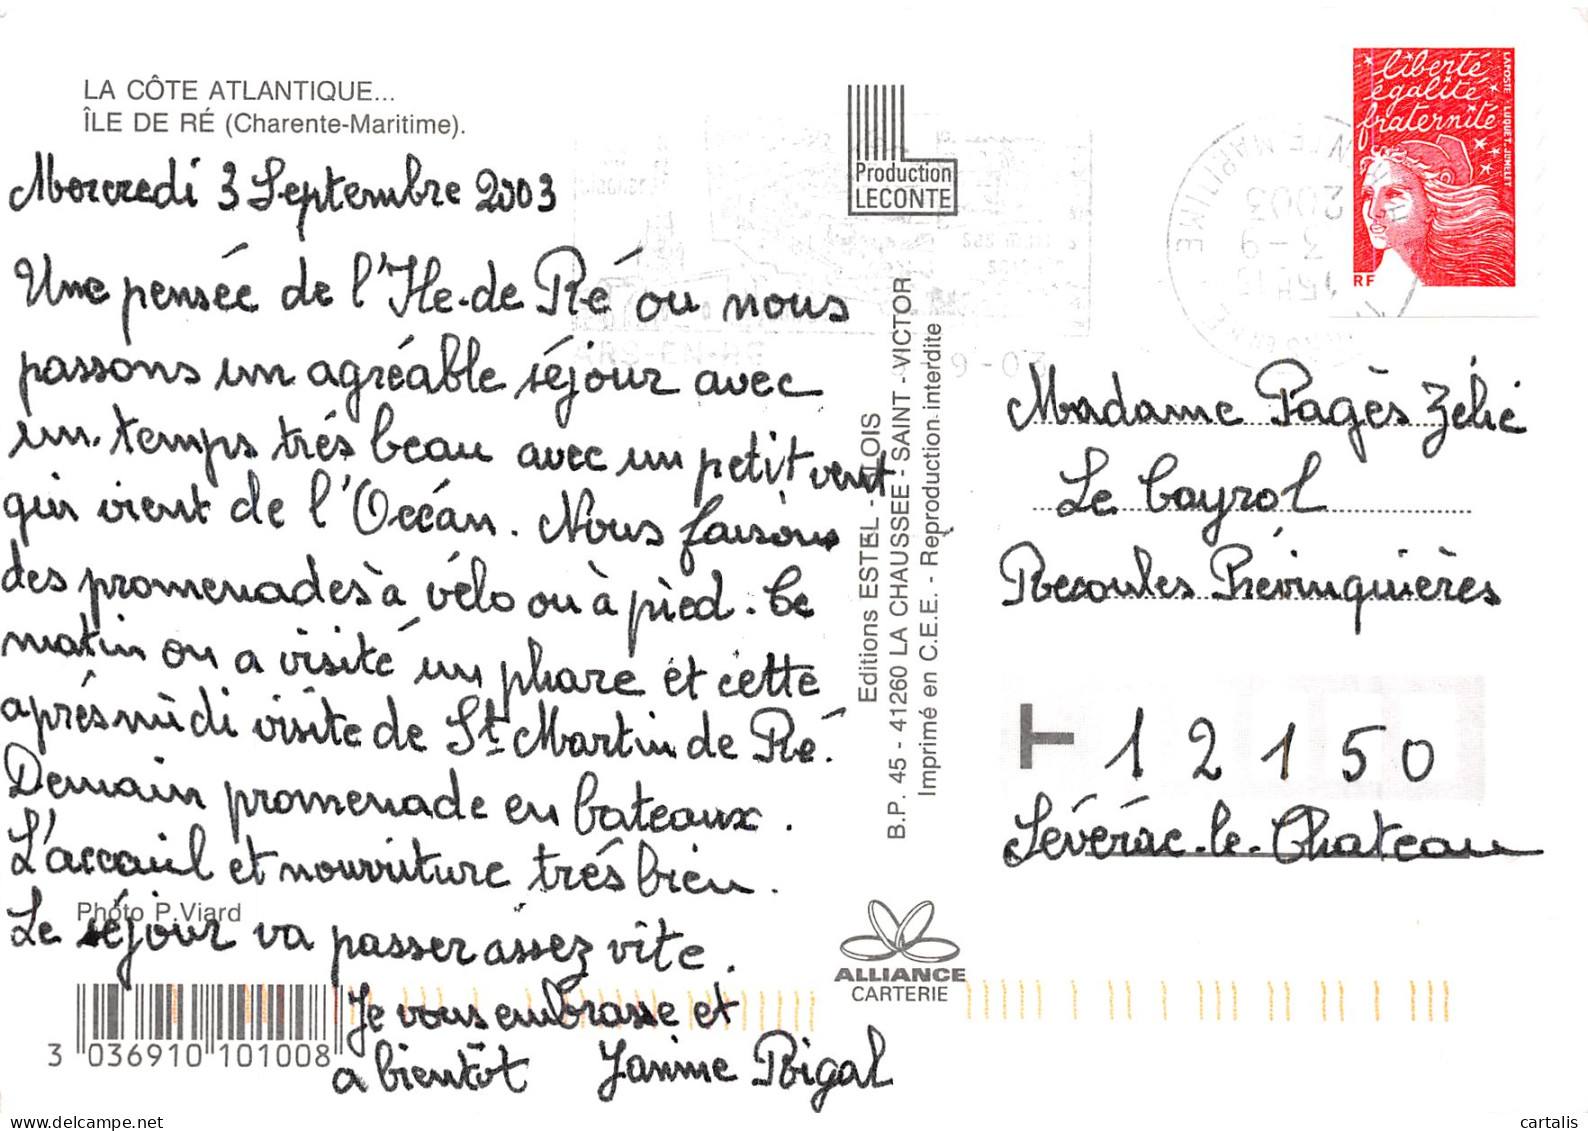 LA CÔTE ATLANTIQUE...
ÎLE DE RÉ (Charente-Maritime).
Mercredi 3 Septembre 2003
Une pensée de l'Ile-de Ré ou nous
passons un agréable séjour avec
un temps trés beau avec un petit vent
qui vient de l'Océan. Nous faisons
des promenades à vélo ou à pied. Ce
matin on a visité un phare et cette
aprés midi visite de St Martin de Ré.
Demain promenade en bateaux.
L'accauil et nourriture trés bien.
Le séjour va passer assez vite.
Je vous embrasse et
a bientôt Janine Rigal
Photo P. Viard
3 036910 101008
Production
LECONTE
Editions ESTEL - BLOIS
B.P. 45 - 41260 LA CHAUSSEE - SAINT - VICTOR
Imprimé en C.E.E. - Reproduction interdite
ALLIANCE
CARTERIE
liberté
égalité
fraternité
LA POSTE LUQUET, JUMELET
RF
2003
3-9
15H15
Madame Pagès Zélie
Le Cayrol
Recoules Prévinquières
12150
Sévérac-le-Chateau
cartalis